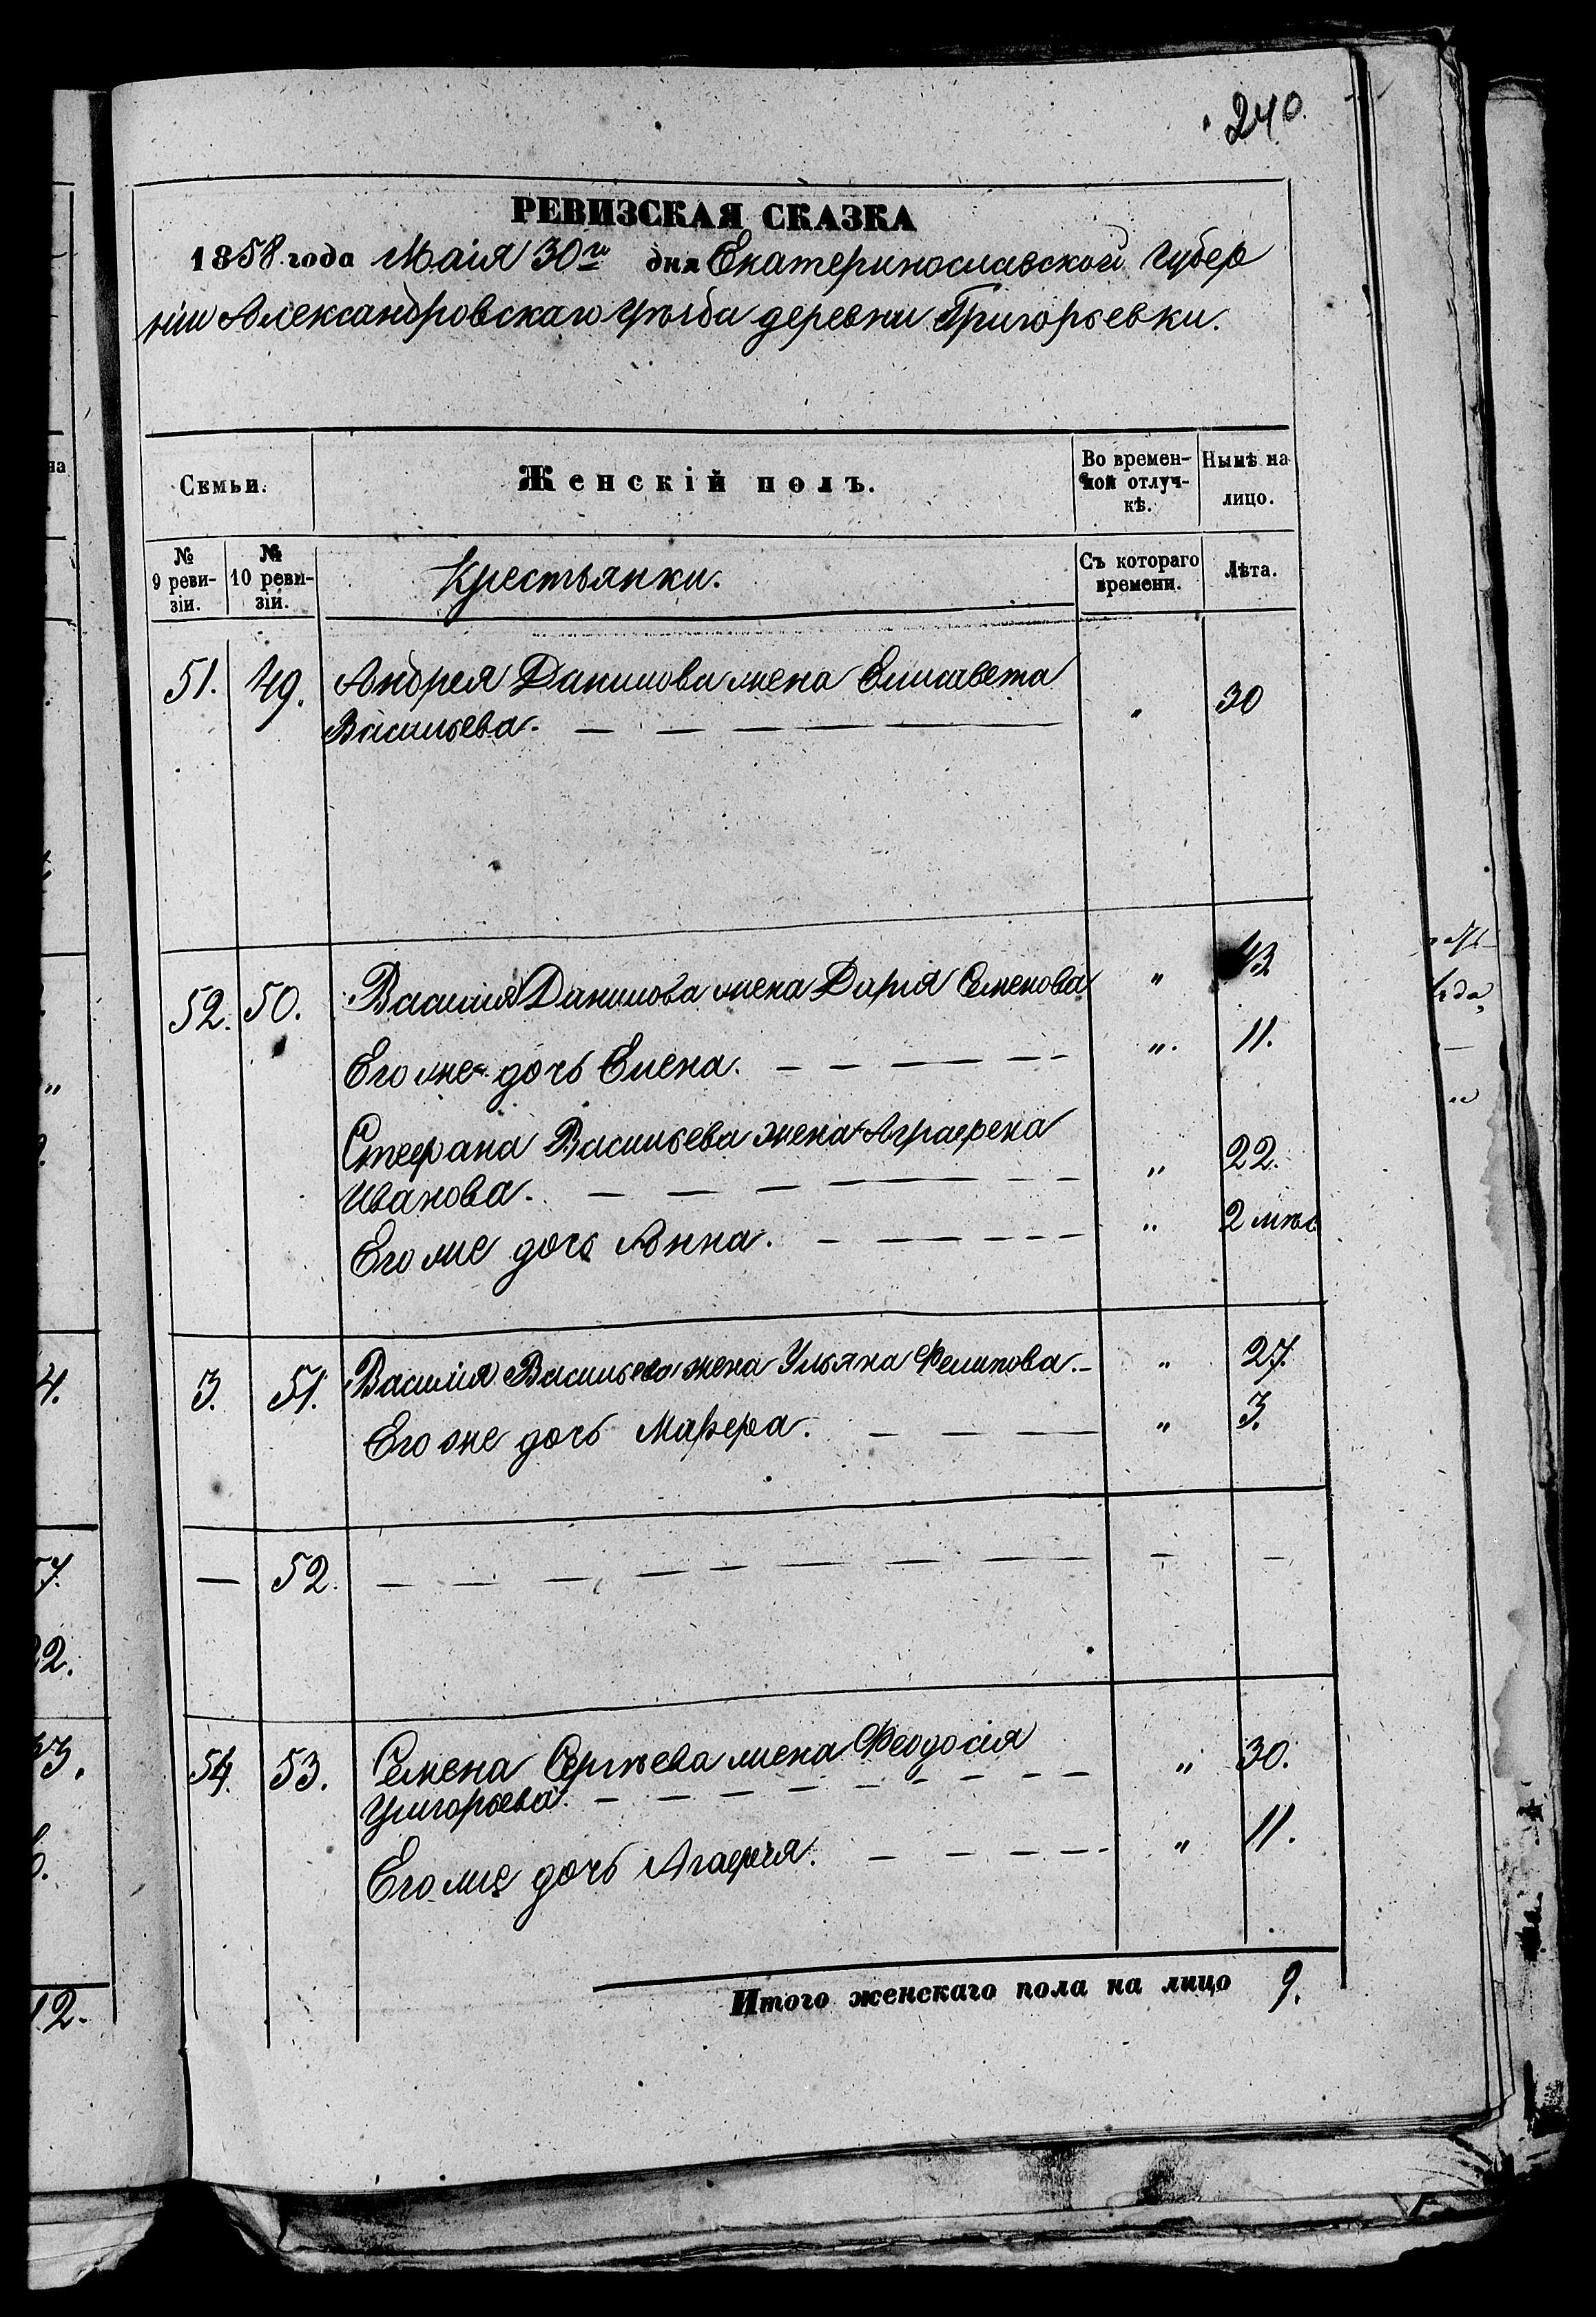 240.
РЕВИЗСКАЯ СКАЗКА
1858 года Маія 30го дня Екатеринославской Губер
ніи Александровскаго Уѣзда деревни Григорьевки.
Семьи. Женскій полъ. Во времен- Нынѣ на
ной отлуч- лицо.
кѣ.
№ № Крестьянки. Съ котораго Лѣта.
9 реви- 10 реви- времени.
зіи. зіи.
51. 49. Андрея Данилова жена Елисавета
Васильева. — — — — " 30
52. 50. Василія Данилова жена Дарія Семенова " 43
Его же дочь Елена. — — — — " 11.
Стефана Васильева жена Аграфена
Иванова. — — — — " 22.
Его же дочь Анна. — — — — " 2 мѣс
3. 51. Василія Васильева жена Ульяна Филипова. — " 27.
Его же дочь Марфа. — — — " 3.
— 52. — — — — — — — — —
54. 53. Семена Сергѣева жена Феодосія " 30.
Григорьева. — — — — — —
Его же дочь Агафія. — — — — " 11.
Итого женскаго пола на лицо 9.